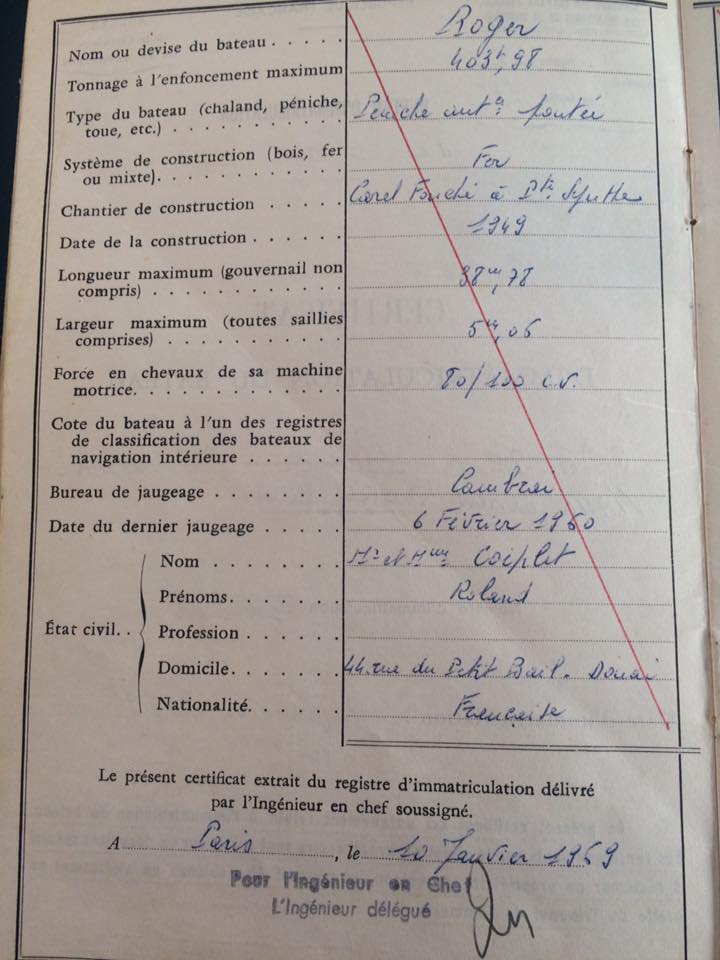 Nom ou devise du bateau . . . . . Roger
Tonnage à l'enfoncement maximum 403t,98
Type du bateau (chaland, péniche,
toue, etc.) . . . . . . . . . . . Péniche autre pontée
Système de construction (bois, fer
ou mixte). . . . . . . . . . . . Fer
Chantier de construction . . . . . Carel Fouché à Pte Synthe
Date de la construction . . . . . . 1949
Longueur maximum (gouvernail non
compris) . . . . . . . . . . . . 38m,78
Largeur maximum (toutes saillies
comprises) . . . . . . . . . . . 5m,06
Force en chevaux de sa machine
motrice. . . . . . . . . . . . . 80/100 c.v.
Cote du bateau à l'un des registres
de classification des bateaux de
navigation intérieure . . . . . .
Bureau de jaugeage . . . . . . . . Cambrai
Date du dernier jaugeage . . . . . 6 Février 1960
État civil. .
Nom . . . . . . . . Mr et Mme Coiplet
Prénoms. . . . . . . Roland
Profession . . . . . .
Domicile. . . . . . . 44. rue du Petit Bail. Douai
Nationalité. . . . . . Française
Le présent certificat extrait du registre d'immatriculation délivré
par l'Ingénieur en chef soussigné.
A Paris, le 10 Janvier 1969
Pour l'Ingénieur en Chef
L'Ingénieur délégué